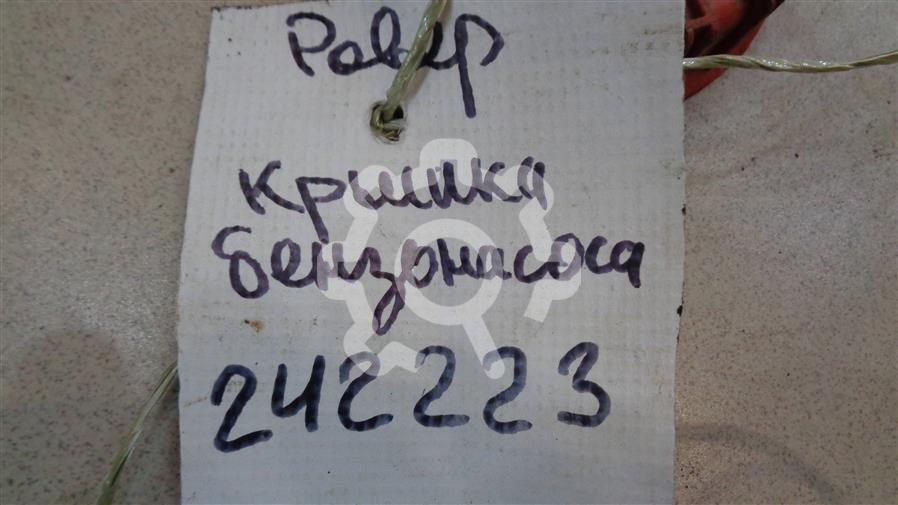 Ровер
крышка
бензонасоса
242223